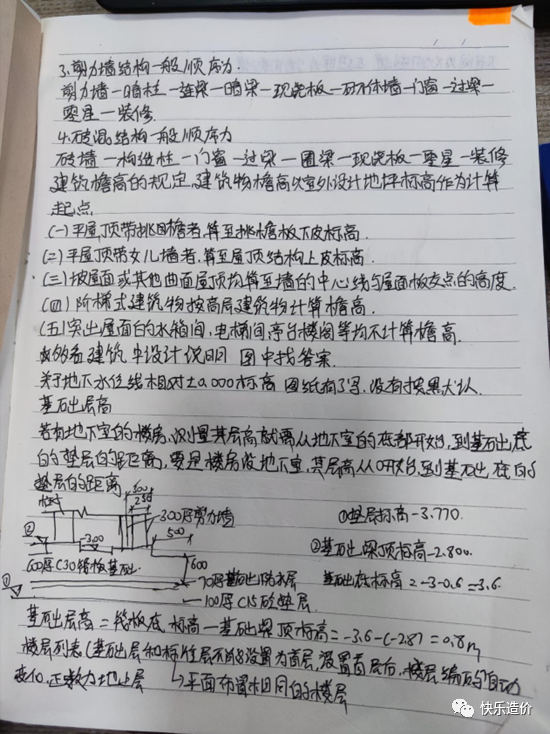 3.剪力墙结构一般顺序为.
剪力墙一暗柱一连梁一暗梁一现浇板一砌体墙一门窗一过梁一
零星一装修.
4.砖混结构一般顺序为
砖墙一构造柱一门窗一过梁一圈梁一现浇板一零星一装修
建筑檐高的规定.建筑物檐高以室外设计地坪标高作为计算
起点
(一)平屋顶带挑檐者,算至挑檐板下皮标高.
(二)平屋顶带女儿墙者,算至屋顶结构上皮标高.
(三)坡屋面或其他曲面屋顶均算至墙的中心线与屋面板交点的高度.
(四)阶梯式建筑物按高层建筑物计算檐高.
(五)突出屋面的水箱间,电梯间,亭台楼阁等均不计算檐高.
建筑 设计说明 图中找答案.
关于地下水位线相对±0.000标高 图纸有了写.没有按默认.
基础层高
若有地下室的楼房,则量其层高就需从地下室的底部开始,到基础底
的垫层的距离,要是楼房没地下室,其层高从0开始,到基础底的
垫层的距离
600
250
300厚剪力墙
500
①垫层标高-3.770.
②基础梁顶标高-2.800.
②
-3.00
600
600厚C30筏板基础
70厚基础防水层
基础底标高 2-3-0.6=3.6
①
100厚C15砼垫层.
基础层高=筏板底标高-基础梁顶标高=-3.6-(-2.8)=0.8m
楼层列表(基础层和标准层不能设置为首层,设置首层后,楼层编码自动
变化,正数为地上层
平面布置相同的楼层
快乐造价